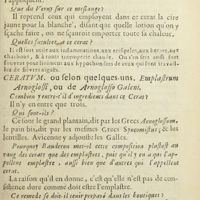 l'appliquent.
Que dit Verny sur ce meslange?
Il reprend ceux qui employent dans ce cerat la cire
jaune pour la blanche, disant que quelle lotion qu'on y
sçache faire, on ne sçauroit emporter toute la chaleur.
Quelles facultez, a ce cerat?
Il est bon utile aux inflammations, aux erysipeles, aux
charbons, & à toute intemperie chaude. On s'en sert aussi
fort heureusement aux hypochondres de ceux qui sont travaillez
de fievres aiguës.
CERATVM, ou selon quelques-uns, Emplastrum
Arnoglossi, ou de Arnoglosso Galeni.
Combien y entre-t'il d'ingrediens dans ce Cerat?
Il n'y en entre que trois.
Qui sont-ils?
Ce sont le grand plantain, dit par les Grecs Arnoglossum,
le pain bisalit, par les mesmes Grecs Syncomistus; & les
lentilles. Avicenne y adjouste les Galles.
Pourquoy Bauderon met-il cette composition plustost au
rang des cerats que des emplastres, puis qu'il y en a qui l'ap-
pellent emplastre, aussi bien que d'autres qui l'appellent
cerat.
La raison qu'il en donne, c'est qu'elle n'est pas de con-
sistence dure comme doit estre l'emplastre.
Ce remede se doit-il tenir preparé dans les boutiques?